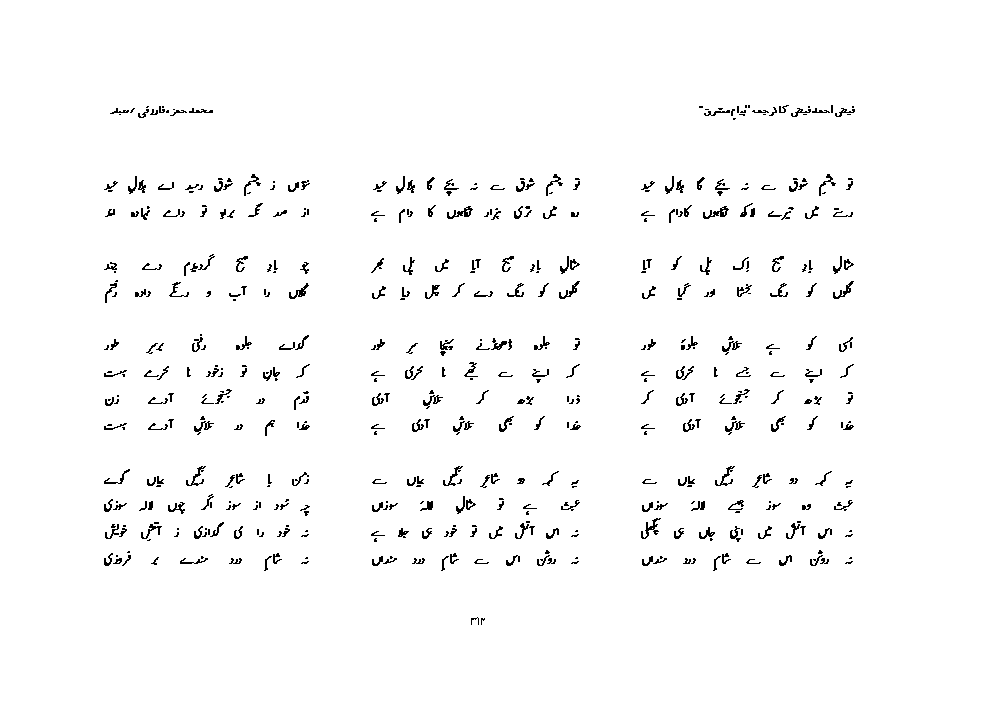 فیض احمد فیض کا ترجمہ "پیامِ مشرق" محمد حمزہ فاروقی / صدر
تو چشمِ شوق سے نہ بچے گا ہلالِ عید
رستے میں تیرے لاکھ نگاہوں کا دام ہے
مثالِ بادِ صبح اِک پل کو آیا
گلوں کو رنگ بخشا اور گیا میں
اُسی کو ہے تلاشِ جلوۂ طور
کہ اپنے سے جسے نا محرمی ہے
تو بڑھ کر جستجوئے آدمی کر
خدا کو بھی تلاشِ آدمی ہے
یہ کہہ دو شاعرِ رنگیں بیاں سے
عبث وہ سوز جیسے لالۂ سوزاں
نہ اس آتش میں اپنی جاں ہی پگھلی
نہ روشن اس سے شامِ درد منداں
تو چشمِ شوق سے نہ بچے گا ہلالِ عید
رہ میں تری ہزار نگاہوں کا دام ہے
مثالِ بادِ صبح آیا میں پل بھر
گلوں کو رنگ دے کر چل دیا میں
تو جلوہ ڈھونڈنے پہنچا سرِ طور
کہ اپنے سے تجھے نا محرمی ہے
ذرا بڑھ کر تلاشِ آدمی
خدا کو بھی تلاشِ آدمی ہے
یہ کہہ دو شاعرِ رنگیں بیاں سے
عبث ہے تو مثالِ لالۂ سوزاں
نہ اس آتش میں تو خود ہی جلا ہے
نہ روشن اس سے شامِ درد منداں
نتواں ز چشمِ شوق رمید اے ہلالِ عید
از صد نگہ براہِ تو دامے نہادہ اند
چو بادِ صبح گردیدم دمے چند
گلاں را آب و رنگے دادہ رفتم
گدائے جلوہ رفتی برسرِ طور
کہ جانِ تو زخود نا محرمے ہست
قدم در جستجوئے آدمے زن
خدا ہم در تلاشِ آدمے ہست
زمن با شاعرِ رنگیں بیاں گوے
چہ سود از سوز اگر چوں لالہ سوزی
نہ خود را می گدازی ز آتشِ خویش
نہ شامِ درد مندے بر فروزی
۳۱۳